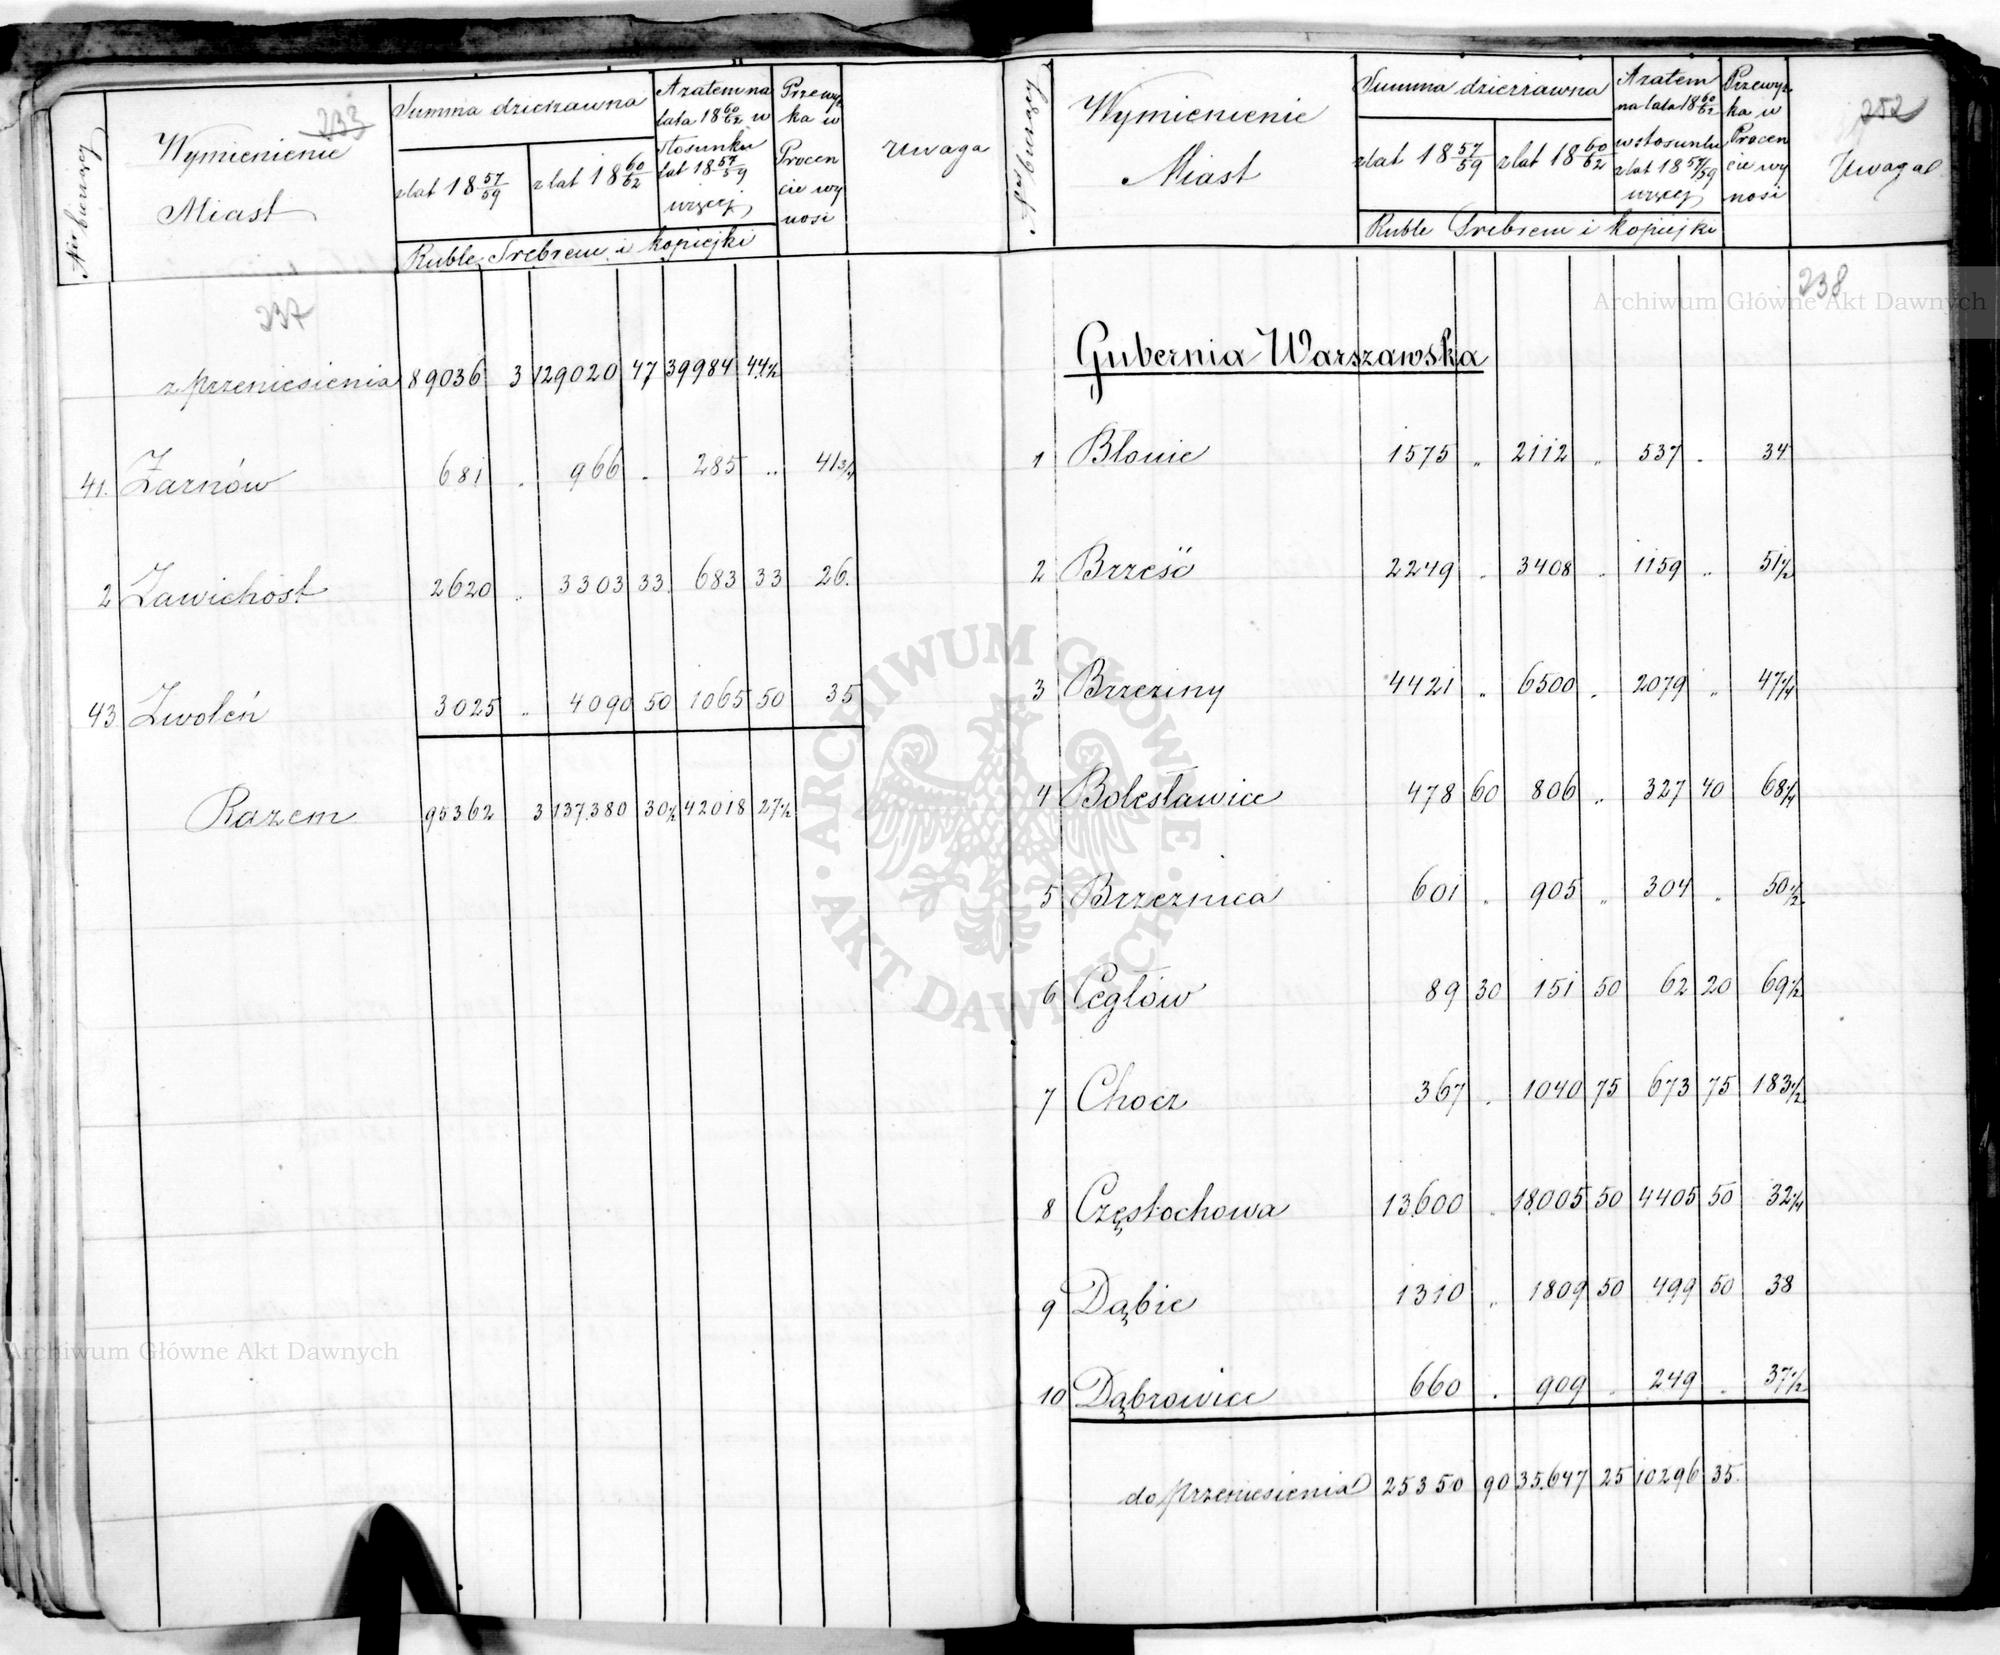 233
Nr bieżący
Wymienienie
Miast
Summa dzierżawna
z lat 18 57/59
z lat 18 60/62
A zatem na
lata 18 60/62 w
stosunku
lat 18 57/59
więcej
Ruble Srebrem i kopiejki
Przewyż
ka w
Procen
cie wy
nosi
Uwaga
237
z przeniesienia 89036 3 129020 47 39984 44½
41. Żarnów 681 „ 966 „ 285 „ 41¾
2 Zawichost 2620 „ 3303 33. 683 33 26.
43 Zwoleń 3025 „ 4090 50 1065 50 35
Razem 95362 3 137.380 30½ 42018 27½
252
Nr bieżący
Wymienienie
Miast
Summa dzierżawna
z lat 18 57/59
z lat 18 60/62
A zatem
na lata 18 60/62
w stosunku
z lat 18 57/59
więcej
Ruble Srebrem i kopiejki
Przewyż-
ka w
Procen
cie wy
nosi
Uwaga
238
Archiwum Główne Akt Dawnych
Gubernia Warszawska
1 Błonie 1575 „ 2112 „ 537 „ 34
2 Brześć 2249 „ 3408 „ 1159 „ 51½
3 Brzeziny 4421 „ 6500 „ 2079 „ 47¼
4 Bolesławice 478 60 806 „ 327 40 68¼
5 Brzeznica 601 „ 905 „ 304 „ 50½
6 Cegłów 89 30 151 50 62 20 69½
7 Chocz 367 „ 1040 75 673 75 183½
8 Częstochowa 13.600 „ 18.005 50 4405 50 32¼
9 Dąbie 1310 „ 1809 50 499 50 38
10 Dąbrowice 660 „ 909 „ 249 „ 37½
do przeniesienia 25350 90 35.647 25 10296 35.
ARCHIWUM GŁÓWNE
AKT DAWNYCH
Archiwum Główne Akt Dawnych